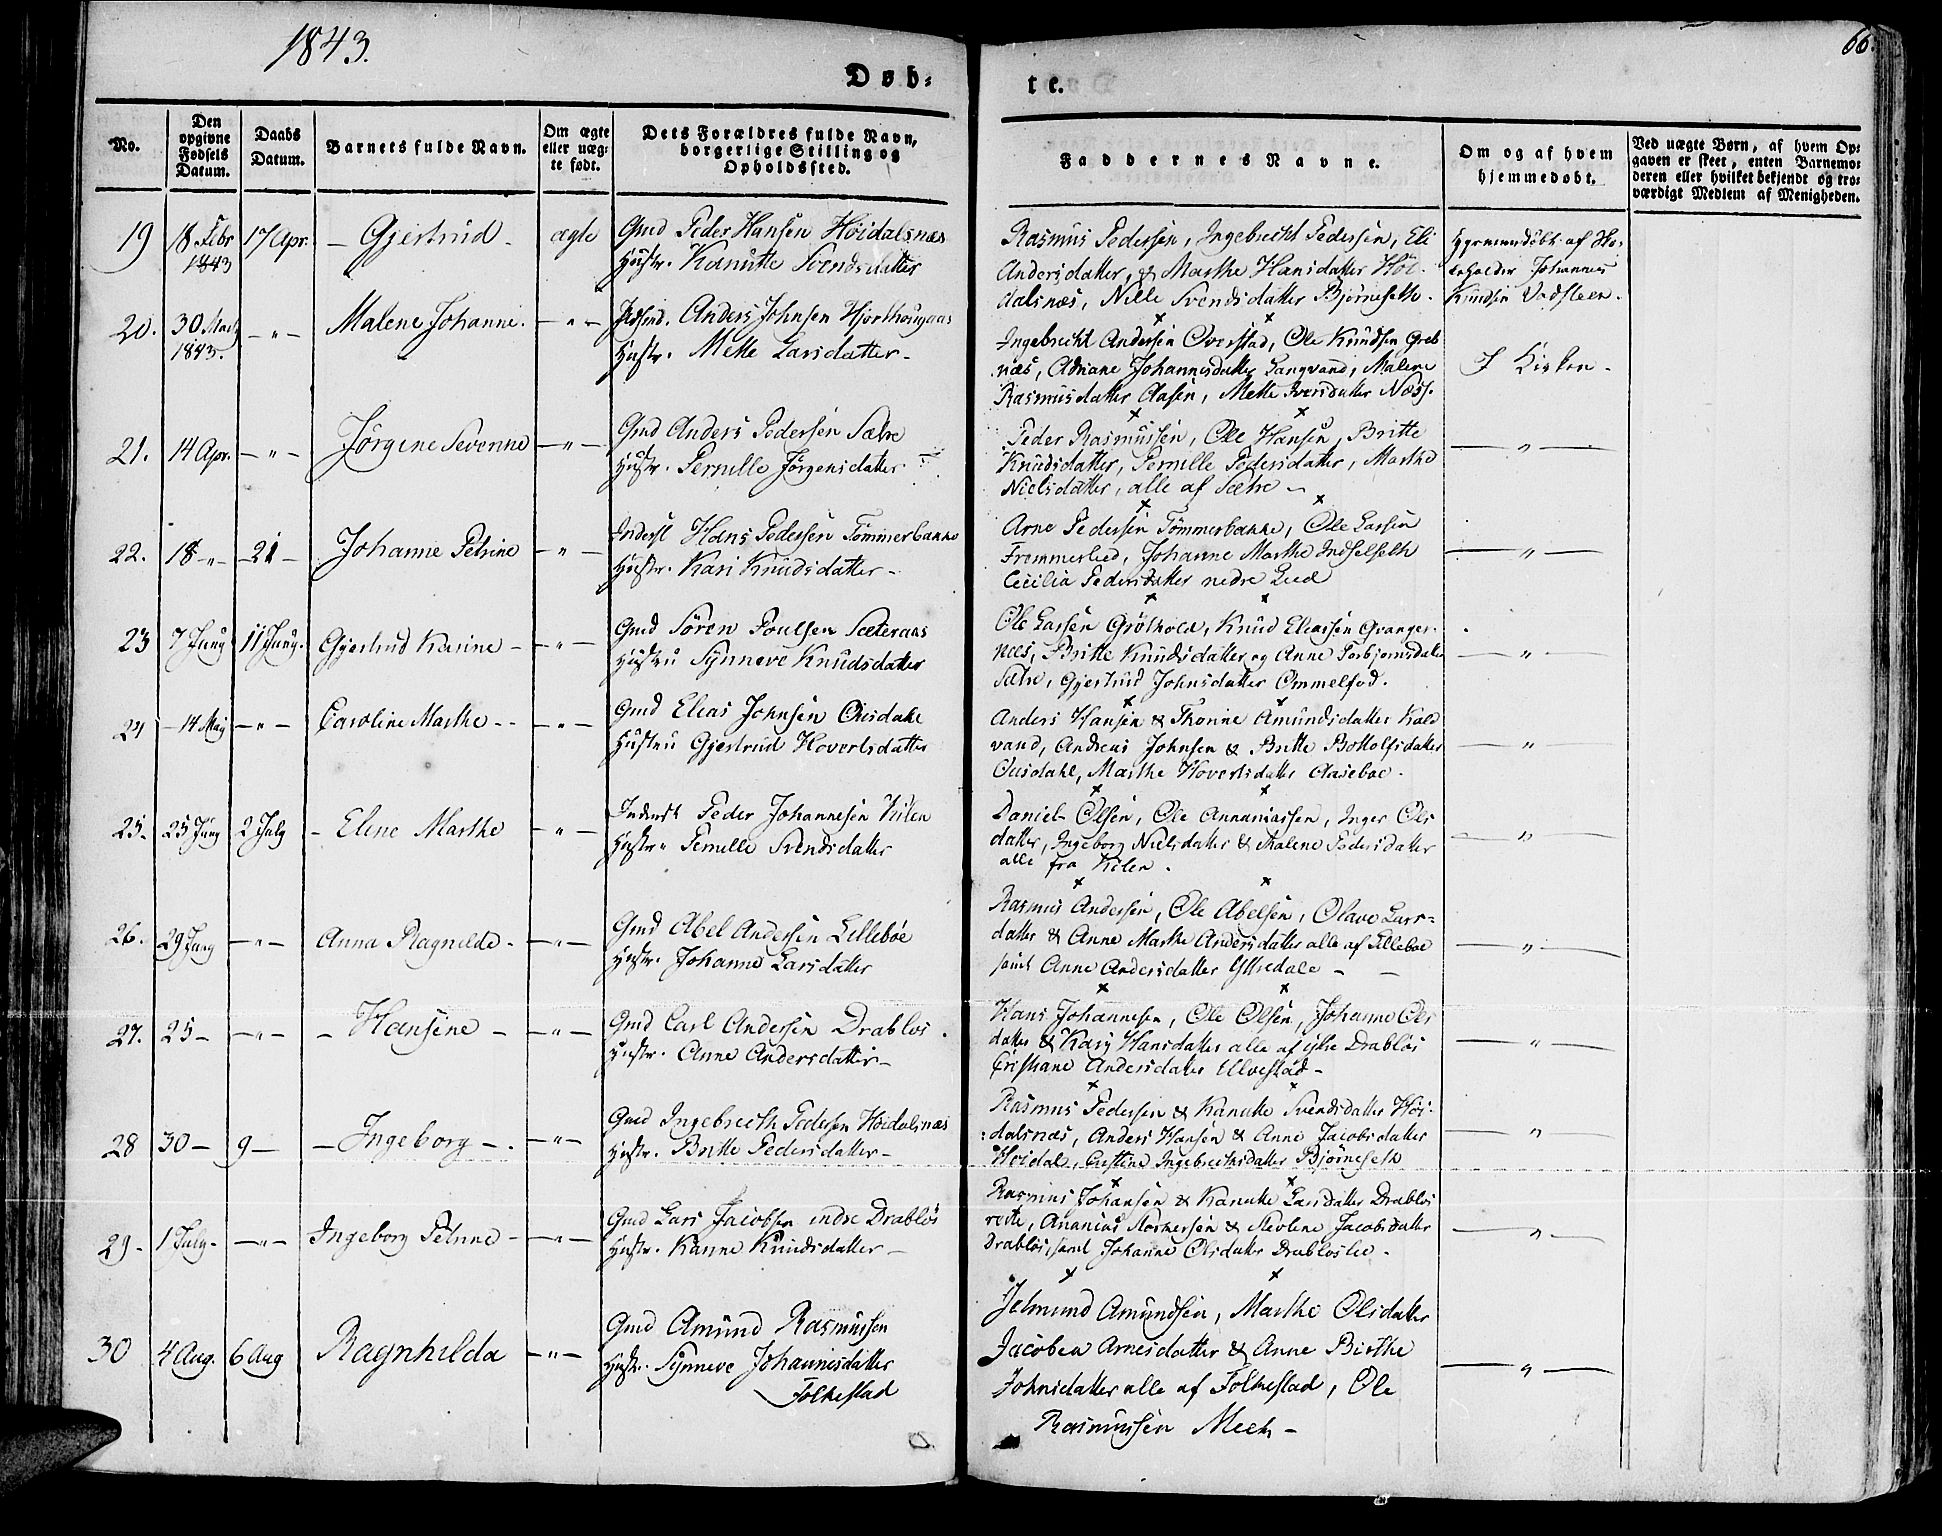 1843.
66.
Døb=
te.
No.
Den opgivne Fødsels Datum.
Daabs Datum.
Barnets fulde Navn.
Om ægte eller uæg- te født.
Dets Forældres fulde Navn, borgerlige Stilling og Opholdssted.
Faddernes Navne.
Om og af hvem hjemmedøbt.
Ved uægte Børn, af hvem Op= gaven er skeet, enten Barnemo= deren eller hvilket bekjendt og tro= værdigt Medlem af Menigheden.
19 18 Febr 1843 17 Apr. - Gjertrud - ægte
Gmd Peder Hansen Høidalsnæs
Hustr. Kanutte Svendsdatter
Rasmus Pedersen, Ingebrecht Pedersen, Eli
Andersdatter, & Marthe Hansdatter Høi-
dalsnæs, Nille Svendsdatter Bjørneseth.
Hjemmedøbt af
Johannes
Knudsen Vadsteen.
20. 30 Marts 1843. -"- Malene Johanne. -"-
Anders Johnsen Hjorthougaas
Hustr. Mette Larsdatter -
Ingebrecht Andersen Overstad, Ole Knudsen Greb
næs, Adriane Johannesdatter Langvand, Malene
Rasmusdatter Aasen, Mette Iversdatter Næss.
I Kirken -
21. 14 Apr. -"- Jørgene Severine -"-
Gmd Anders Pedersen Sætre
Hustr. Pernille Jørgensdatter
Peder Rasmussen, Ole Hansen, Britte
Knudsdatter, Pernille Pedersdatter, Marthe
Nielsdatter, alle af Sætre -
-"-
22. 18 -"- 21 - Johanne Petrine -"-
Inderst Hans Pedersen Tømmerbakke
Hustr. Kari Knudsdatter -
Arne Pedersen Tømmerbakke, Ole Larsen
Fremmerlied, Johanne Marthe Indselseth
Cicilia Pedersdatter nedre Lied
-"-
23 7 Juny 11 Juny. Gjertrud Karine - -"-
Gmd Søren Poulsen Sæteraas
Hustru Synneve Knudsdatter
Ole Larsen Grøthold, Knud Eliassen Qvanger-
næs, Britte Knudsdatter og Anne Torbjørnsdatter
Sætre, Gjertrud Johnsdatter Ommelfod.
-"-
24 - 14 Maj -"- Caroline Marthe - - -"-
Gmd Elias Johnsen Ousdahl
Hustru Gjertrud Hovertsdatter
Anders Hansen & Thonne Amundsdatter Kald
vand, Andreas Johnsen & Britte Bottolfsdatter
Ousdahl, Marthe Hovertsdatter Aaseboe.
-"-
25. 25 Juny 2 July - Eline Marthe -"-
Inderst Peder Johannesen Kilen
Hustru Pernille Svendsdatter
Daniel Olsen, Ole Annaniassen, Inger Ols
datter, Ingeborg Nielsdatter & Malene Pedersdatter
alle fra Kilen.
-"-
26. 29 Juny -"- Anna Ragnilde - -"-
Gmd Abel Andersen Lillebøe
Hustr. Johanne Larsdatter
Rasmus Andersen, Ole Abelsen, Olave Lars=
datter & Anne Marthe Andersdatter alle af Lilleboe
samt Anne Andersdatter Ytredale -
-"-
27. 25 - -"- - Hansine - -"-
Gmd Carl Andersen Drabløs.
Hustr. Anne Andersdatter -
Hans Johannesen, Ole Olsen, Johanne Ols
datter & Kary Hansdatter alle af ytre Drabløs
Cristiane Andersdatter Ulvestad -
-"-
28 30 - 9 - - Ingeborg -. -"-
Gmd Ingebrecth Pedersen Høidalsnæs
Hustr. Britte Pedersdatter -
Rasmus Pedersen & Kanutte Svendsdatter Høi-
dalsnæs, Anders Hansen & Anne Jacobsdatter
Høidal, Cristine Ingebrecthsdatter Bjørneseth
-"-
29 - 1 July - -"- Ingeborg Petrine - -"-
Gmd Lars Jacobsen indre Drabløs
Hustr. Kanne Knudsdatter -
Rasmus Johansen & Kanutte Larsdatter Drabløs
, Ananias Norkersen & Nevlene Jacobsdatter
Drabløs, samt Johanne Olsdatter Drabløslie -
-"-
30 4 Aug. 6 Aug Ragnhilda -"-
Gmd Amund Rasmussen
Hustr. Synneve Johannesdatter
Folkestad
Jetmund Amundsen, Marthe Olsdatter
Jacobea Arnesdatter & Anne Birthe
Johnsdatter alle af Folkestad, Ole
Rasmussen Meek -
-"-